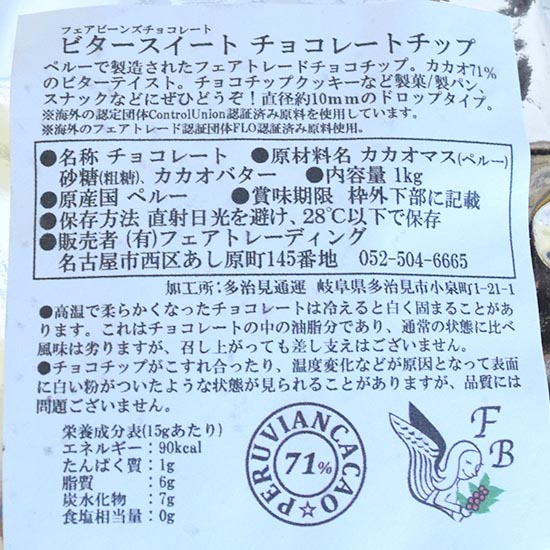 フェアビーンズチョコレート
ビタースイート チョコレートチップ
ペルーで製造されたフェアトレードチョコチップ。カカオ71%
のビターテイスト。チョコチップクッキーなど製菓/製パン、
スナックなどにぜひどうぞ！直径約10mmのドロップタイプ。
※海外の認定団体ControlUnion認証済み原料を使用しています。
※海外のフェアトレード認証団体FLO認証済み原料使用。
●名称 チョコレート ●原材料名 カカオマス(ペルー)
砂糖(粗糖)、カカオバター ●内容量 1kg
●原産国 ペルー ●賞味期限 枠外下部に記載
●保存方法 直射日光を避け、28℃以下で保存
●販売者 (有)フェアトレーディング
名古屋市西区あし原町145番地 052-504-6665
加工所：多治見通運 岐阜県多治見市小泉町1-21-1
●高温で柔らかくなったチョコレートは冷えると白く固まることがあ
ります。これはチョコレートの中の油脂分であり、通常の状態に比べ
風味は劣りますが、召し上がっても差し支えはございません。
●チョコチップがこすれ合ったり、温度変化などが原因となって表面
に白い粉がついたような状態が見られることがありますが、品質には
問題ございません。
栄養成分表(15gあたり)
エネルギー：90kcal
たんぱく質：1g
脂質　　　：6g
炭水化物　：7g
食塩相当量：0g
PERUVIANCACAO☆
71%
F
B